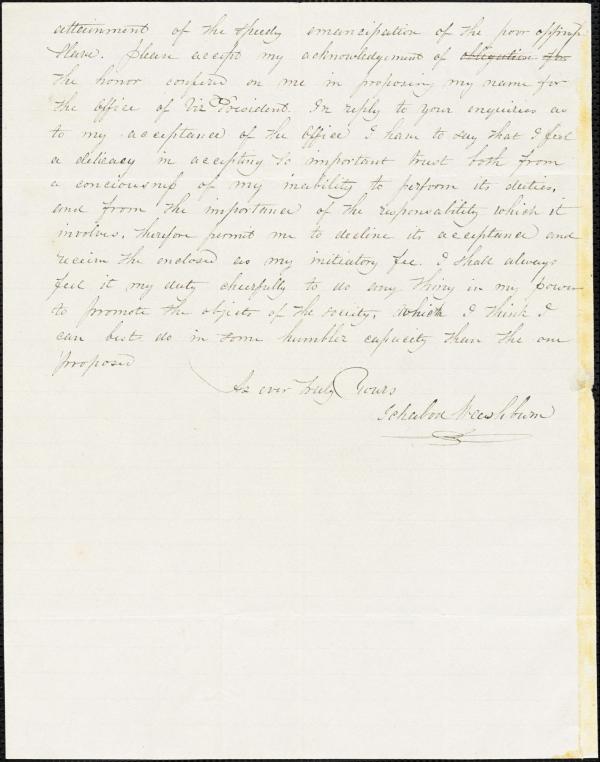 attainment of the speedy emancipation of the poor oppres
Slave. please accept my acknowledgement of obligation for
the honor confered on me in proposing my name for
the office of Vice President. In reply to your enquiries as
to my acceptance of the office I have to say that I feel
a delicacy in accepting so important trust both from
a conciousness of my inability to perform its duties,
and from the importance of the responsability which it
involves, therefore permit me to decline its acceptance and
receive the enclosed as my initiatory fee. I shall always
feel it my duty cheerfully to do any thing in my power
to promote the objects of the society, which I think I
can best do in some humbler capacity than the one
proposed
As ever truly Yours
Ichabod Washburn